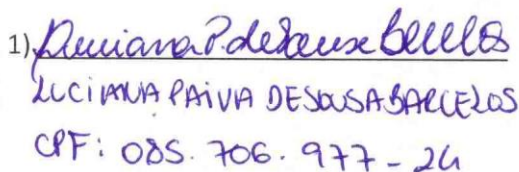 1) Luciana P. de Sousa Barcelos
LUCIANA PAIVA DE SOUSA BARCELOS
CPF: 085.706.977-24